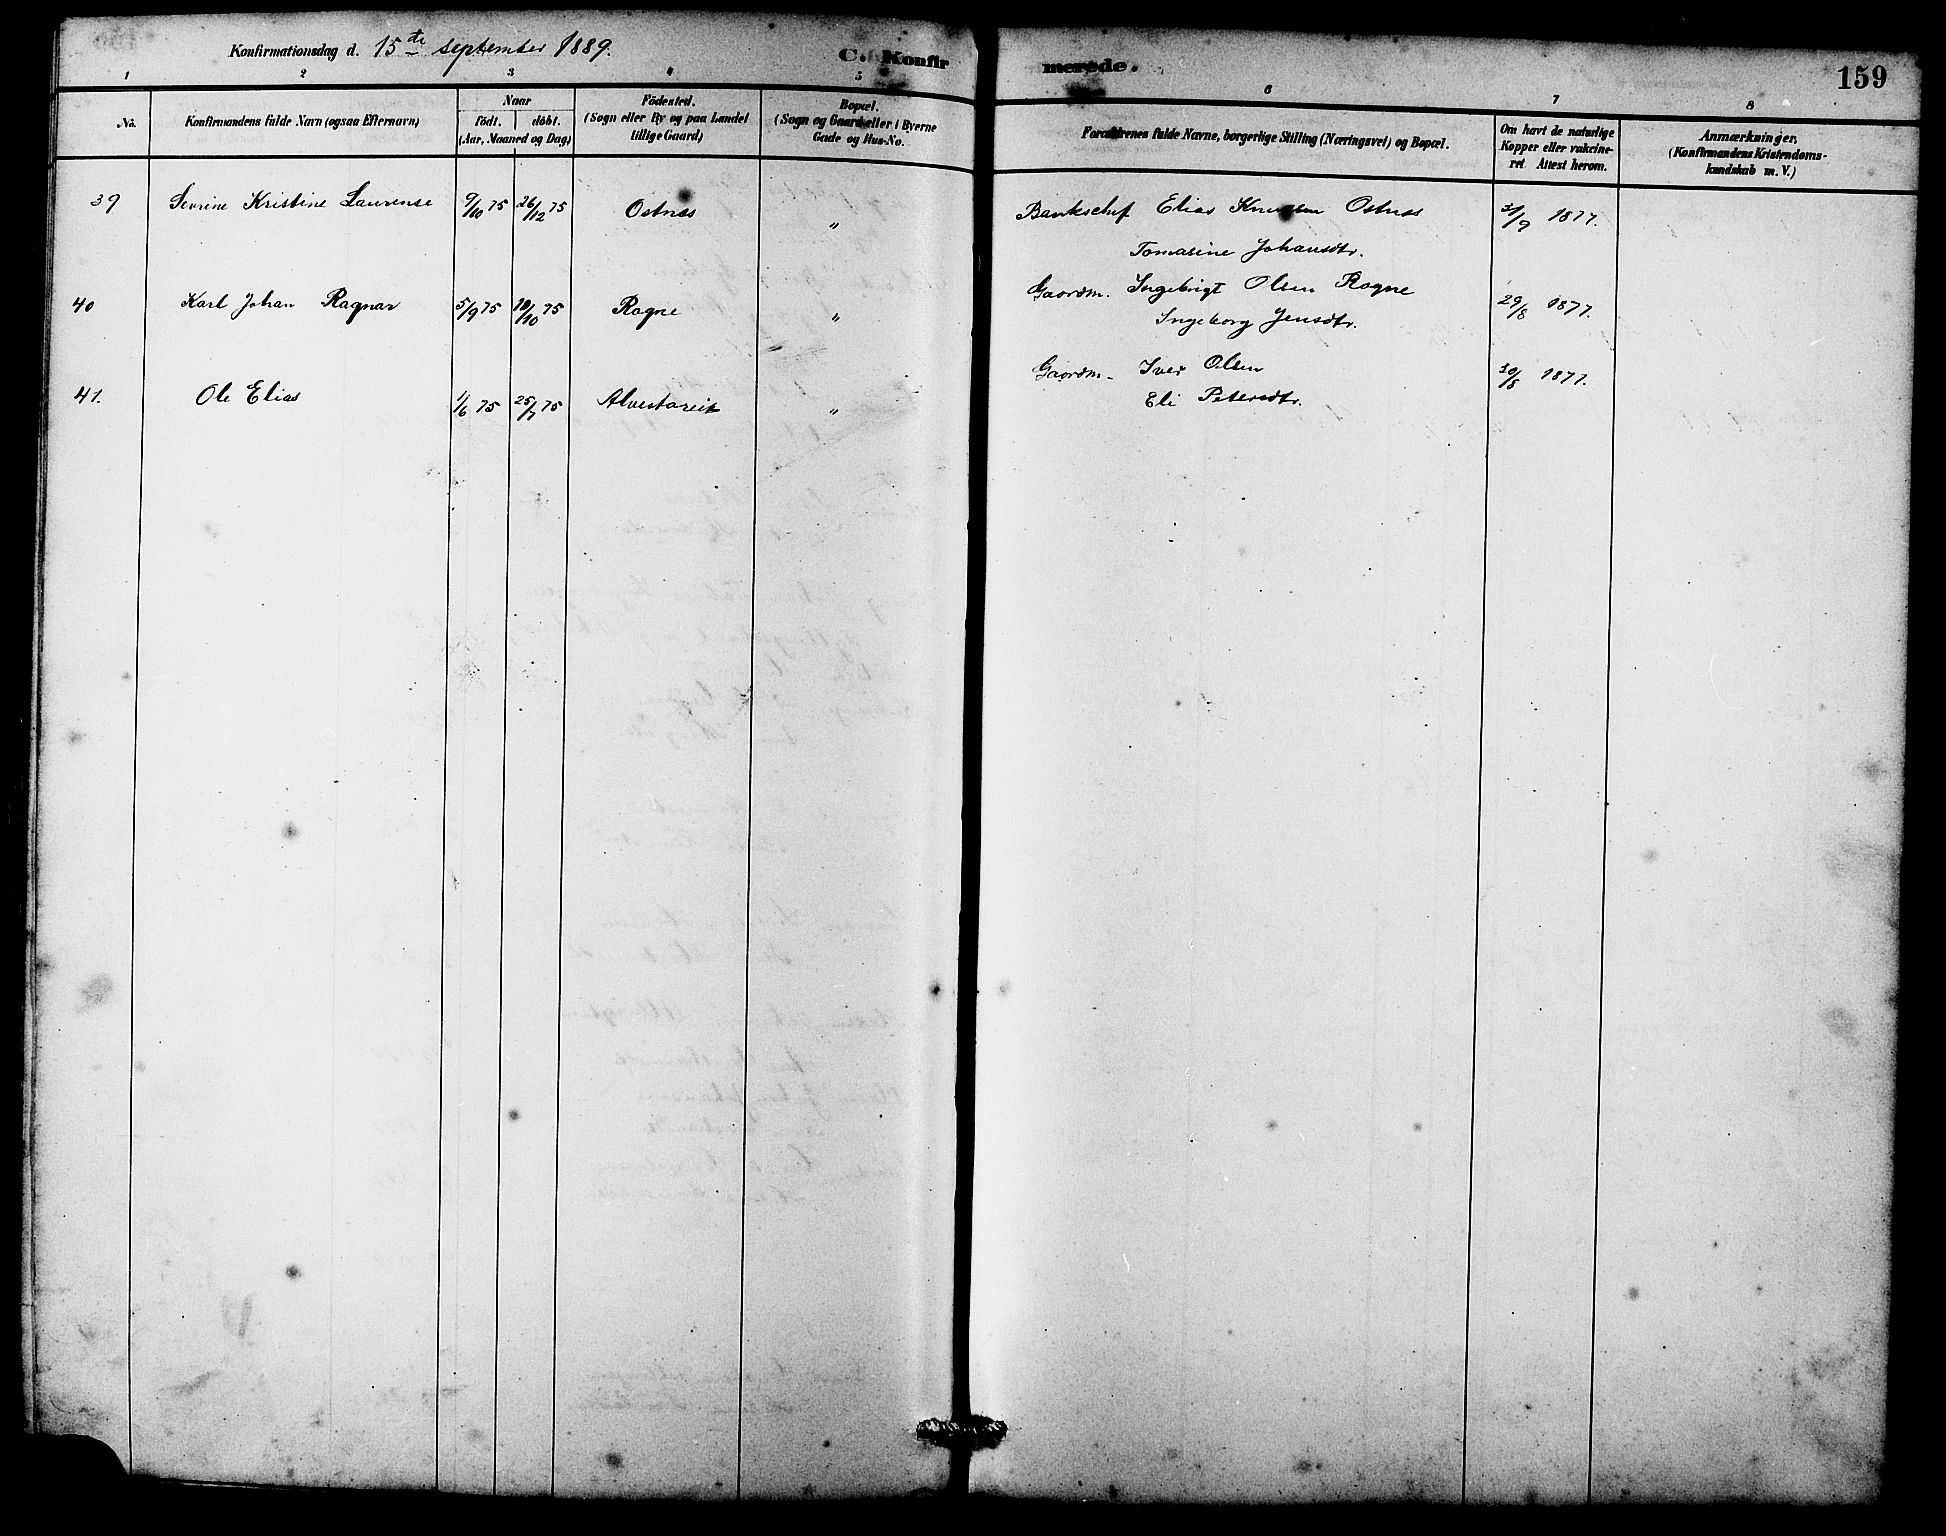 Konfirmationsdag d. 15de september 1889.
C. Konfirmerede.
159
1 2 3 4 5 6 7 8
No.
Konfirmandens fulde Navn (ogsaa Efternavn)
Naar
födt. döbt.
(Aar, Maaned og Dag)
Födested.
(Sogn eller By og paa Landet
tillige Gaard)
Bopæl.
(Sogn og Gaard eller i Byerne
Gade og Hus-No.
Forældrenes fulde Navne, borgerlige Stilling (Næringsvei) og Bopæl.
Om havt de naturlige
Kopper eller vakcine-
ret Attest herom.
Anmærkninger,
(Konfirmandens Kristendoms-
kundskab m. V.)
39 Sevrine Kristine Laurense 9/10 75 26/12 75 Ostnæs " Bankschef Elias Knutsen Ostnæs 1877.
Tomasine Johansdtr.
40 Karl Johan Ragnar 5/9 75 10/10 75 Rogne " Gaardm. Ingebrigt Olsen Rogne 29/8 1877.
Ingeborg Jensdtr.
41. Ole Elias 1/6 75 25/7 75 Alvestareit " Gaardm- Iver Olsen 30/8 1877.
Eli Petersdtr.